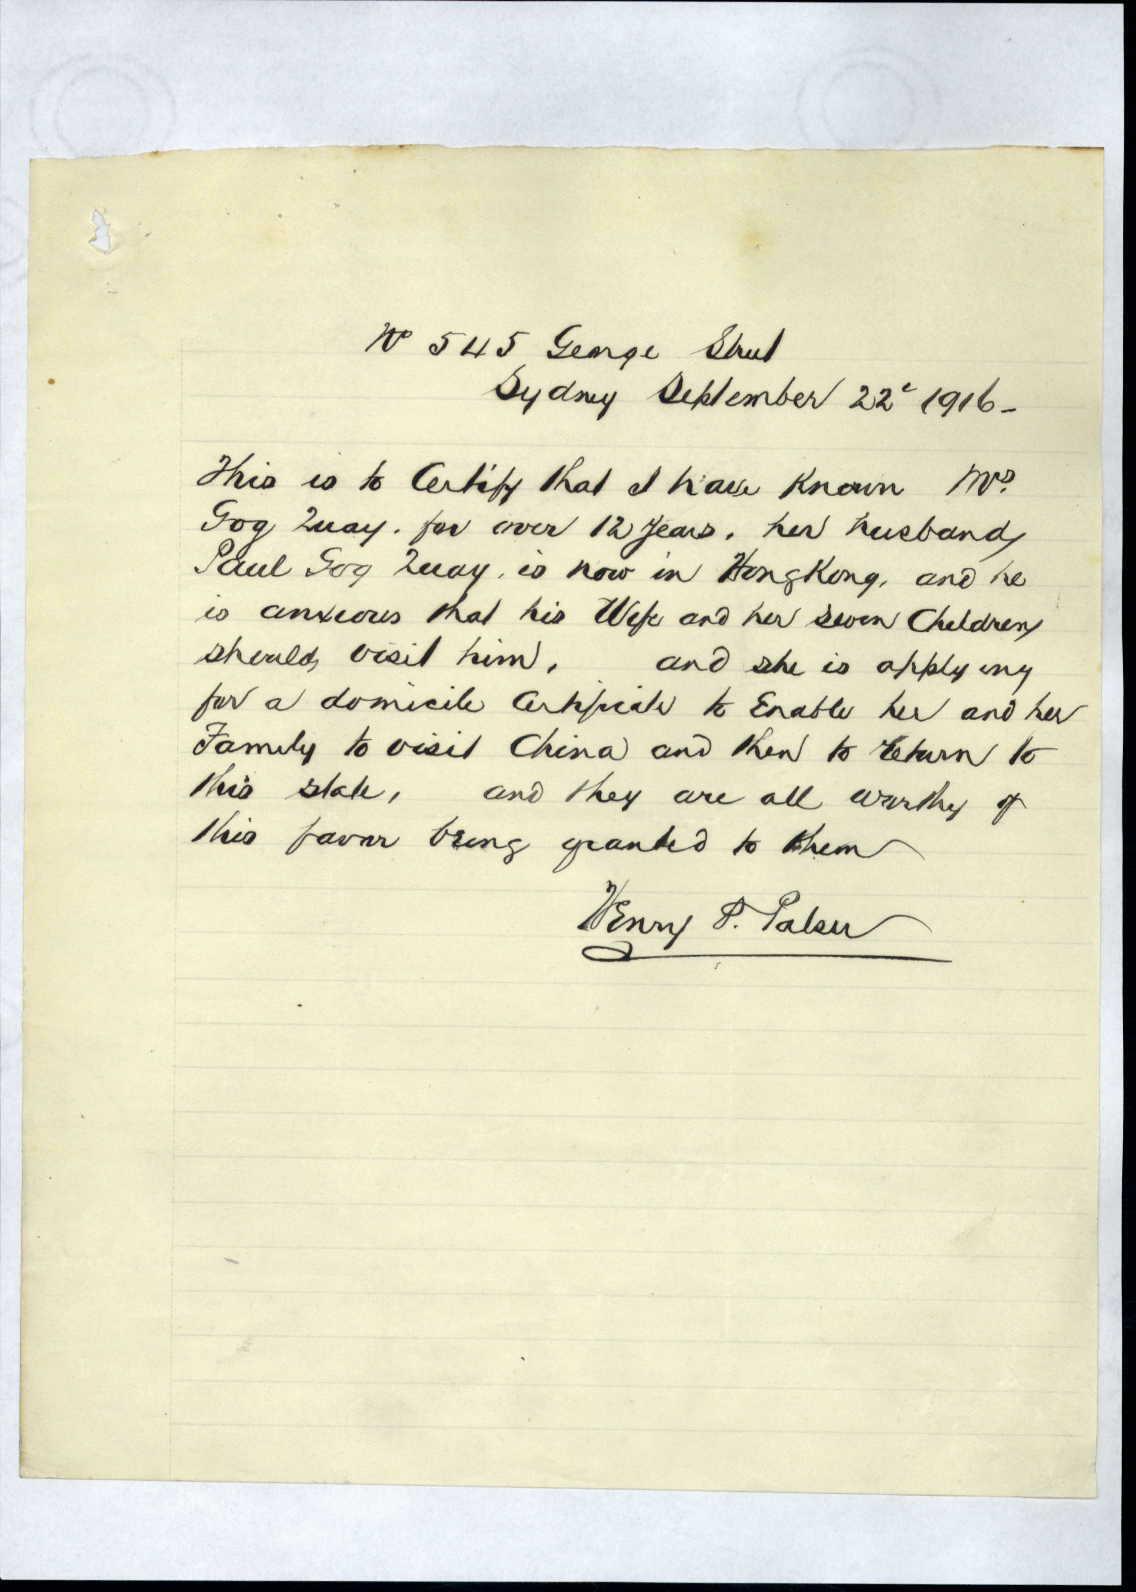 No 545 George Street
Sydney September 22d 1916-
This is to Certify that I have Known Mrs.
Gog Quay. for over 12 years. her husband
Paul Gog Quay. is now in Hong Kong. and he
is anxious that his Wife and her seven Children
should visit him. and she is applying
for a domicile Certificate to Enable her and her
Family to visit China and then to return to
this state, and they are all worthy of
this favor being granted to them
Henry P. Palser